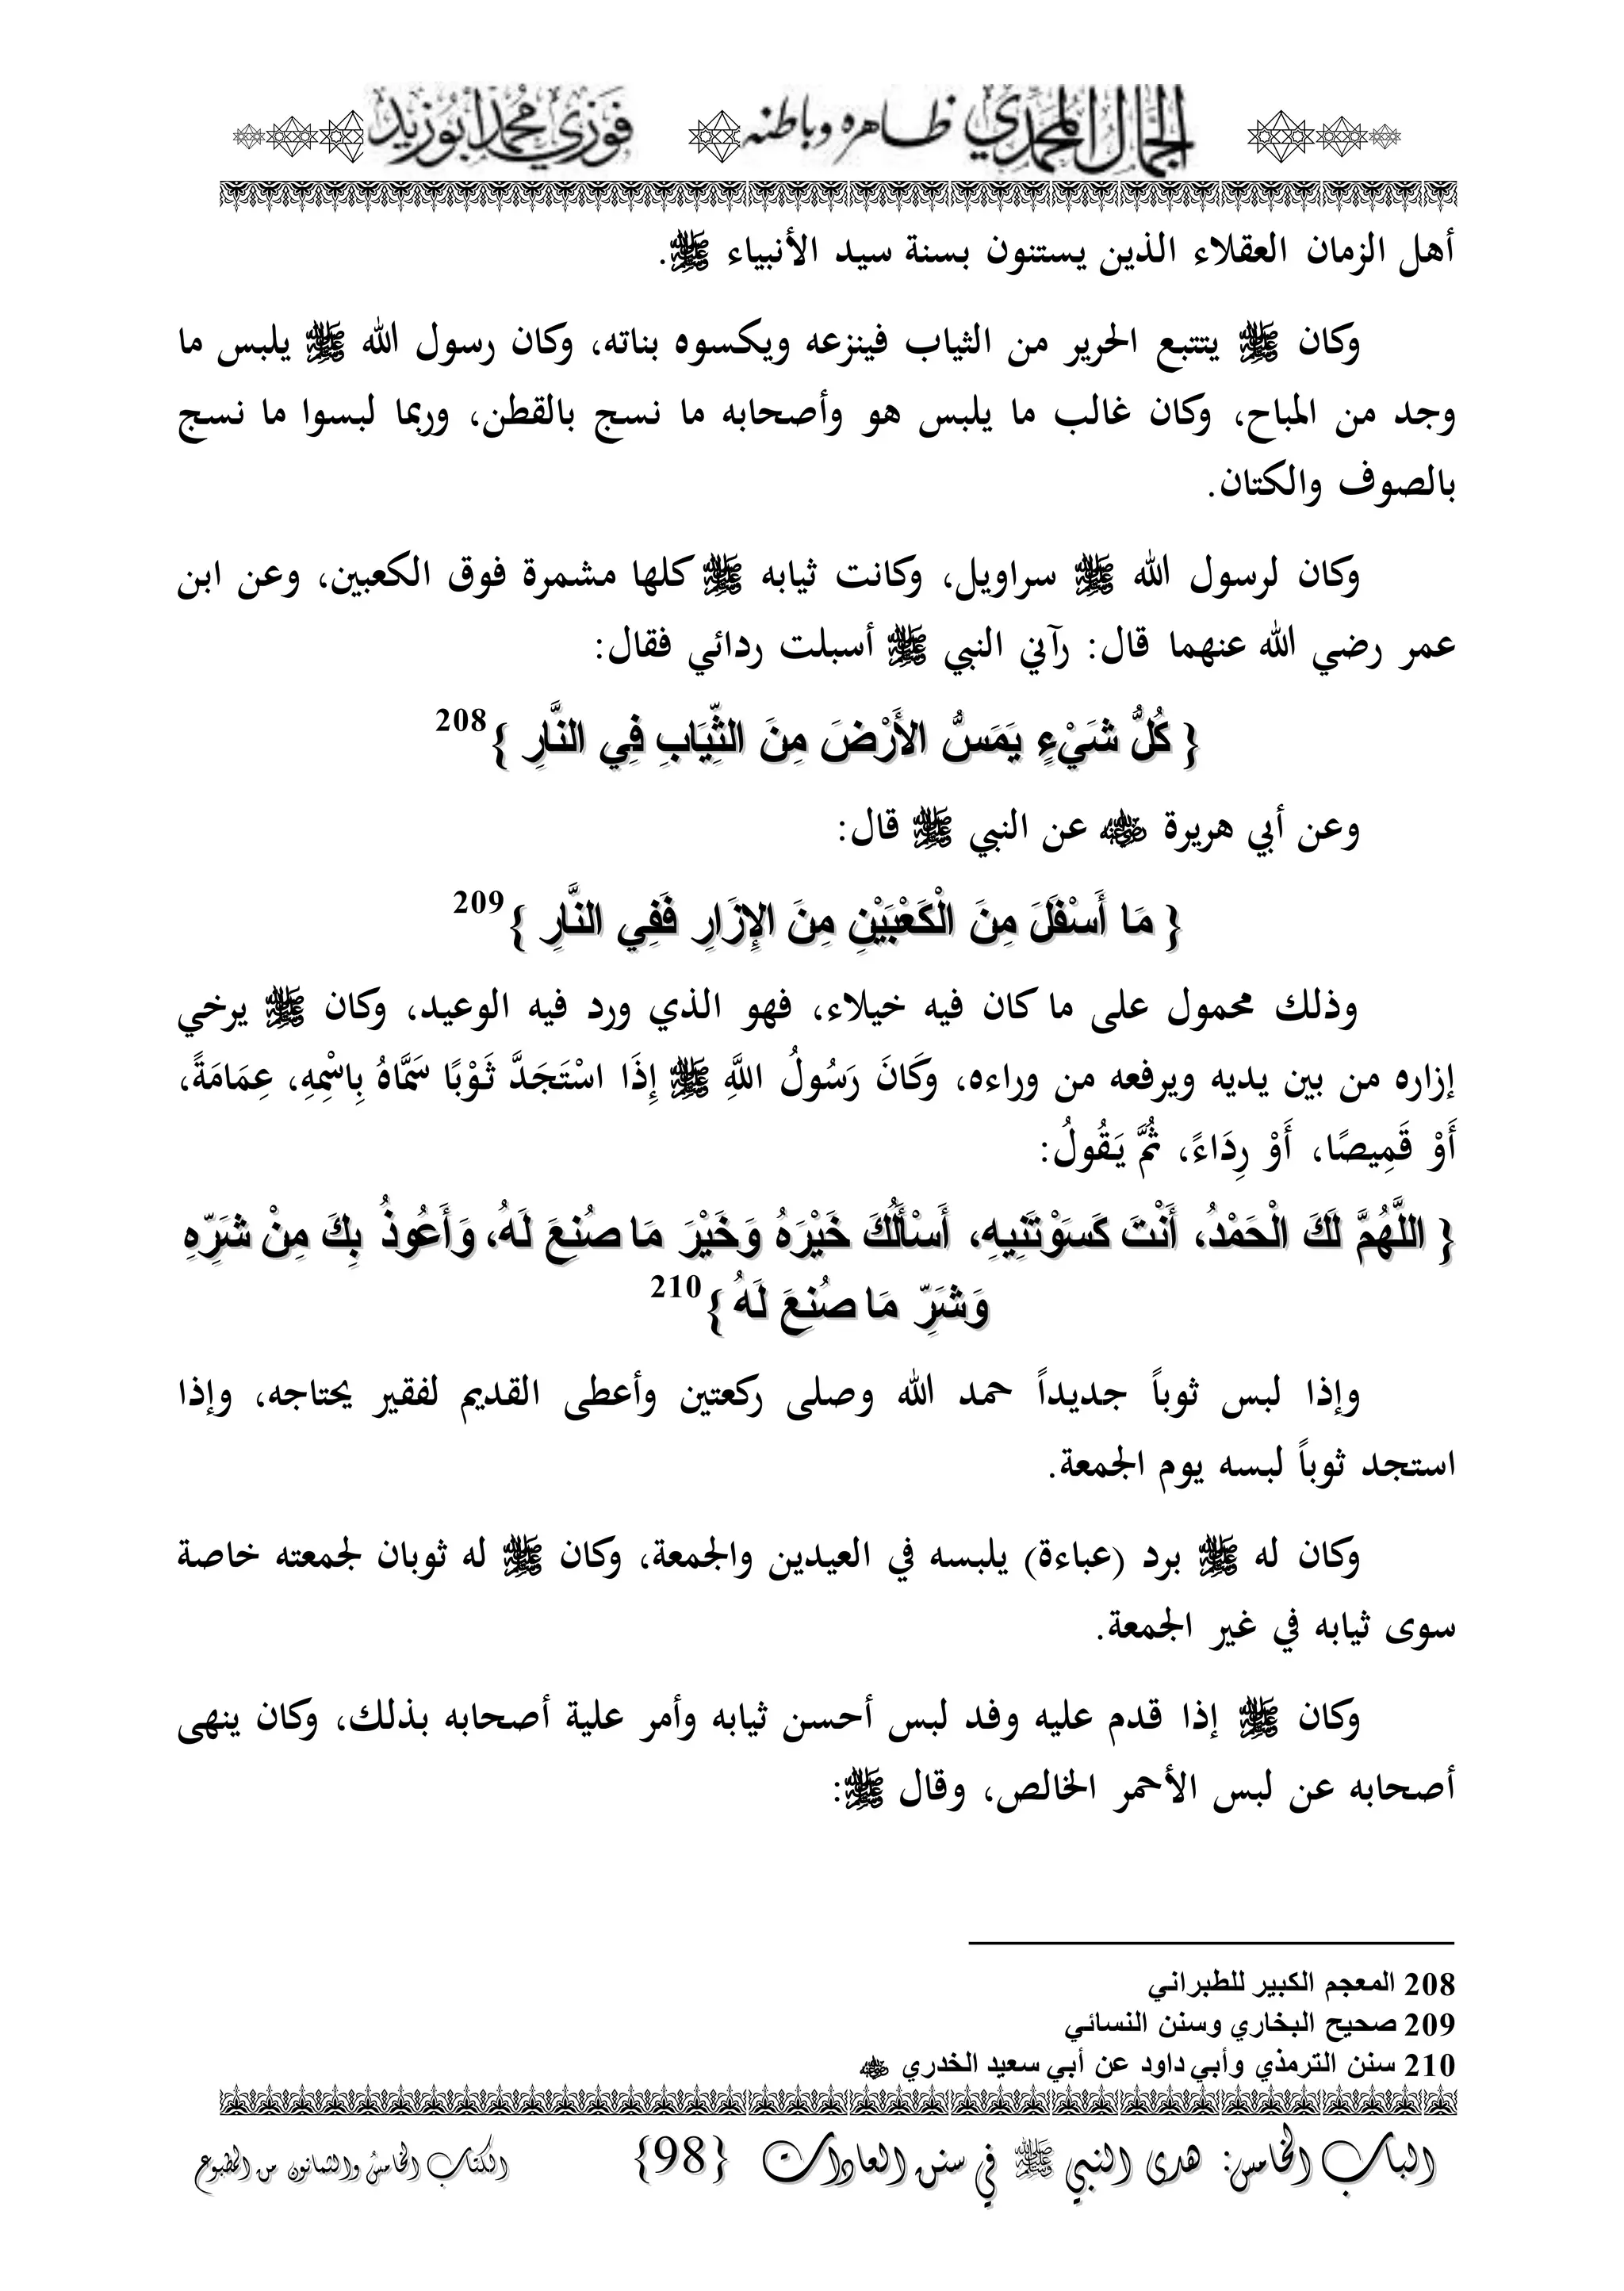 الجمال المحمدي ظاهره وباطنه فوزي محمد أبوزيد
أهل الزمان العقلاء الذين يستنون بسنة سيد الأنبياء ﷺ.
وكان ﷺ يتتبع الحرير من الثياب فينزعه ويكسوه بناته، وكان رسول الله ﷺ يلبس ما
وجد من المباح، وكان غالب ما يلبس هو وأصحابه ما نسج بالقطن، وربما لبسوا ما نسج
بالصوف والكتان.
وكان لرسول الله ﷺ سراويل، وكانت ثيابه ﷺ كلها مشمرة فوق الكعبين، وعن ابن
عمر رضي الله عنهما قال: رآني النبي ﷺ أسبلت ردائي فقال:
{ كُلُّ شَيْءٍ يَمَسُّ الأَرْضَ مِنَ الثِّيَابِ فِي النَّارِ }208
وعن أبي هريرة ﷺ عن النبي ﷺ قال:
{ مَا أَسْفَلَ مِنَ الْكَعْبَيْنِ مِنَ الإِزَارِ فَفِي النَّارِ }209
وذلك محمول على ما كان فيه خيلاء، فهو الذي ورد فيه الوعيد، وكان ﷺ يرخي
إزاره من بين يديه ويرفعه من وراءه، وَكَانَ رَسُولُ اللَّهِ ﷺ إِذَا اسْتَجَدَّ ثَوْبًا سَمَّاهُ بِاسْمِهِ، عِمَامَةً،
أَوْ قَمِيصًا، أَوْ رِدَاءً، ثُمَّ يَقُولُ:
{ اللَّهُمَّ لَكَ الْحَمْدُ، أَنْتَ كَسَوْتَنِيهِ، أَسْأَلُكَ خَيْرَهُ وَخَيْرَ مَا صُنِعَ لَهُ، وَأَعُوذُ بِكَ مِنْ شَرِّهِ
وَشَرِّ مَا صُنِعَ لَهُ }210
وإذا لبس ثوباً جديداً حمد الله وصلى ركعتين وأعطى القديم لفقير يحتاجه، وإذا
استجد ثوباً لبسه يوم الجمعة.
وكان له ﷺ برد (عباءة) يلبسه في العيدين والجمعة، وكان ﷺ له ثوبان لجمعته خاصة
سوى ثيابه في غير الجمعة.
وكان ﷺ إذا قدم عليه وفد لبس أحسن ثيابه وأمر علية أصحابه بذلك، وكان ينهى
أصحابه عن لبس الأحمر الخالص، وقال ﷺ:
208 المعجم الكبير للطبراني
209 صحيح البخاري وسنن النسائي
210 سنن الترمذي وأبي داود عن أبي سعيد الخدري
الباب الخامس: هدى النبي ﷺ في سنن العادات {98} الكتاب الخامس والثمانون من المطبوع